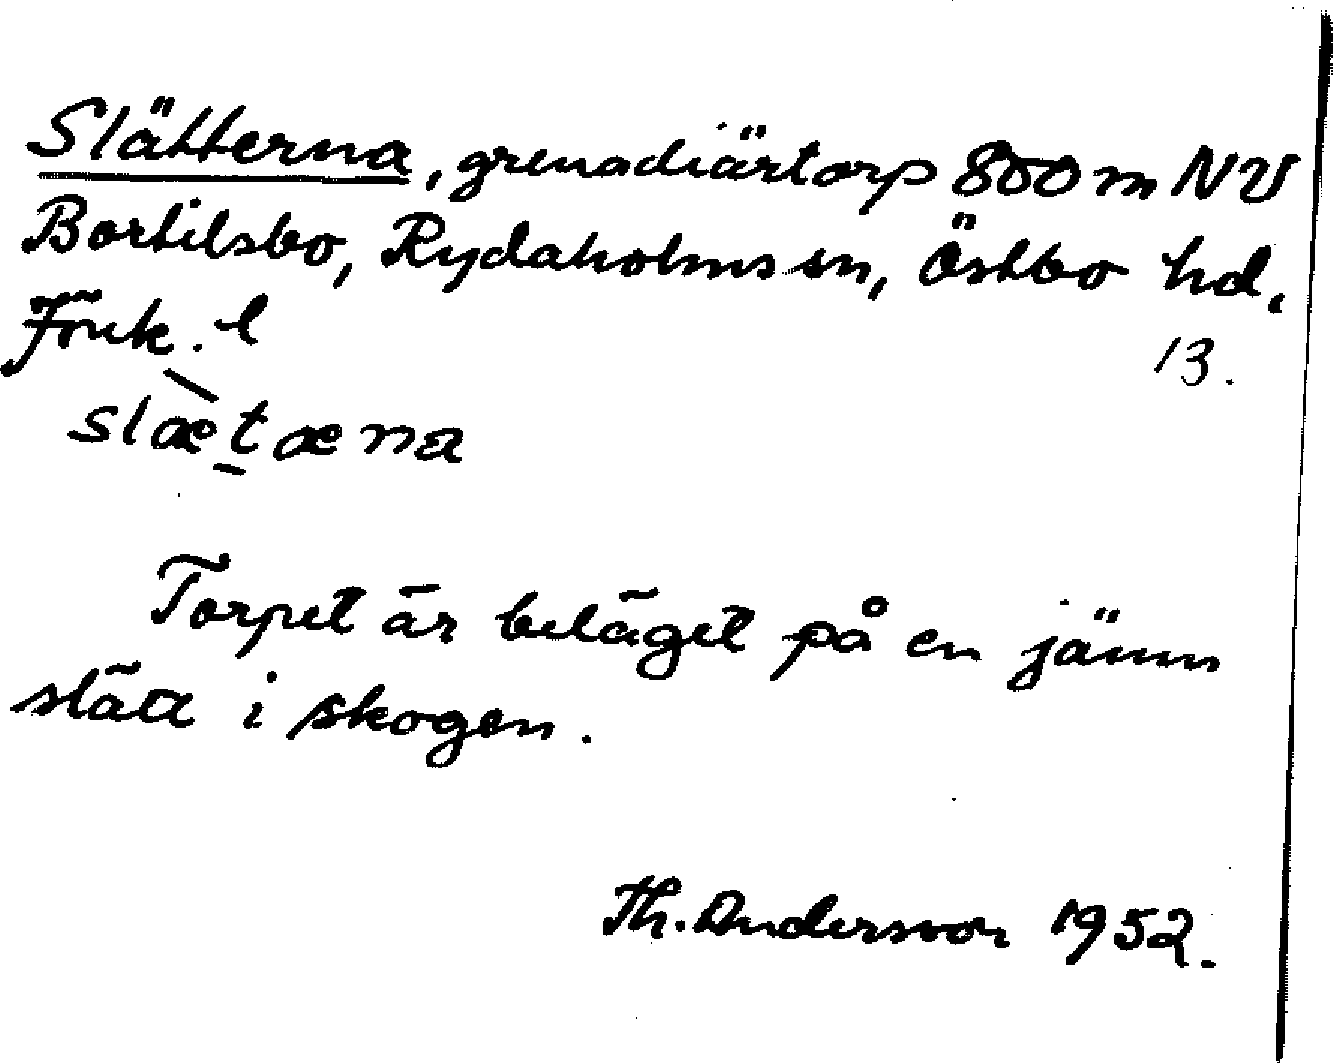 Slätterna, grenadiärtorp 800 m NV
Bortilsbo, Rydaholms sn, Östbo hd,
Jönk. l
13.
slæ̀t̠æna
Torpet är beläget på en jämn
slätt i skogen.
Th. Andersson 1952.